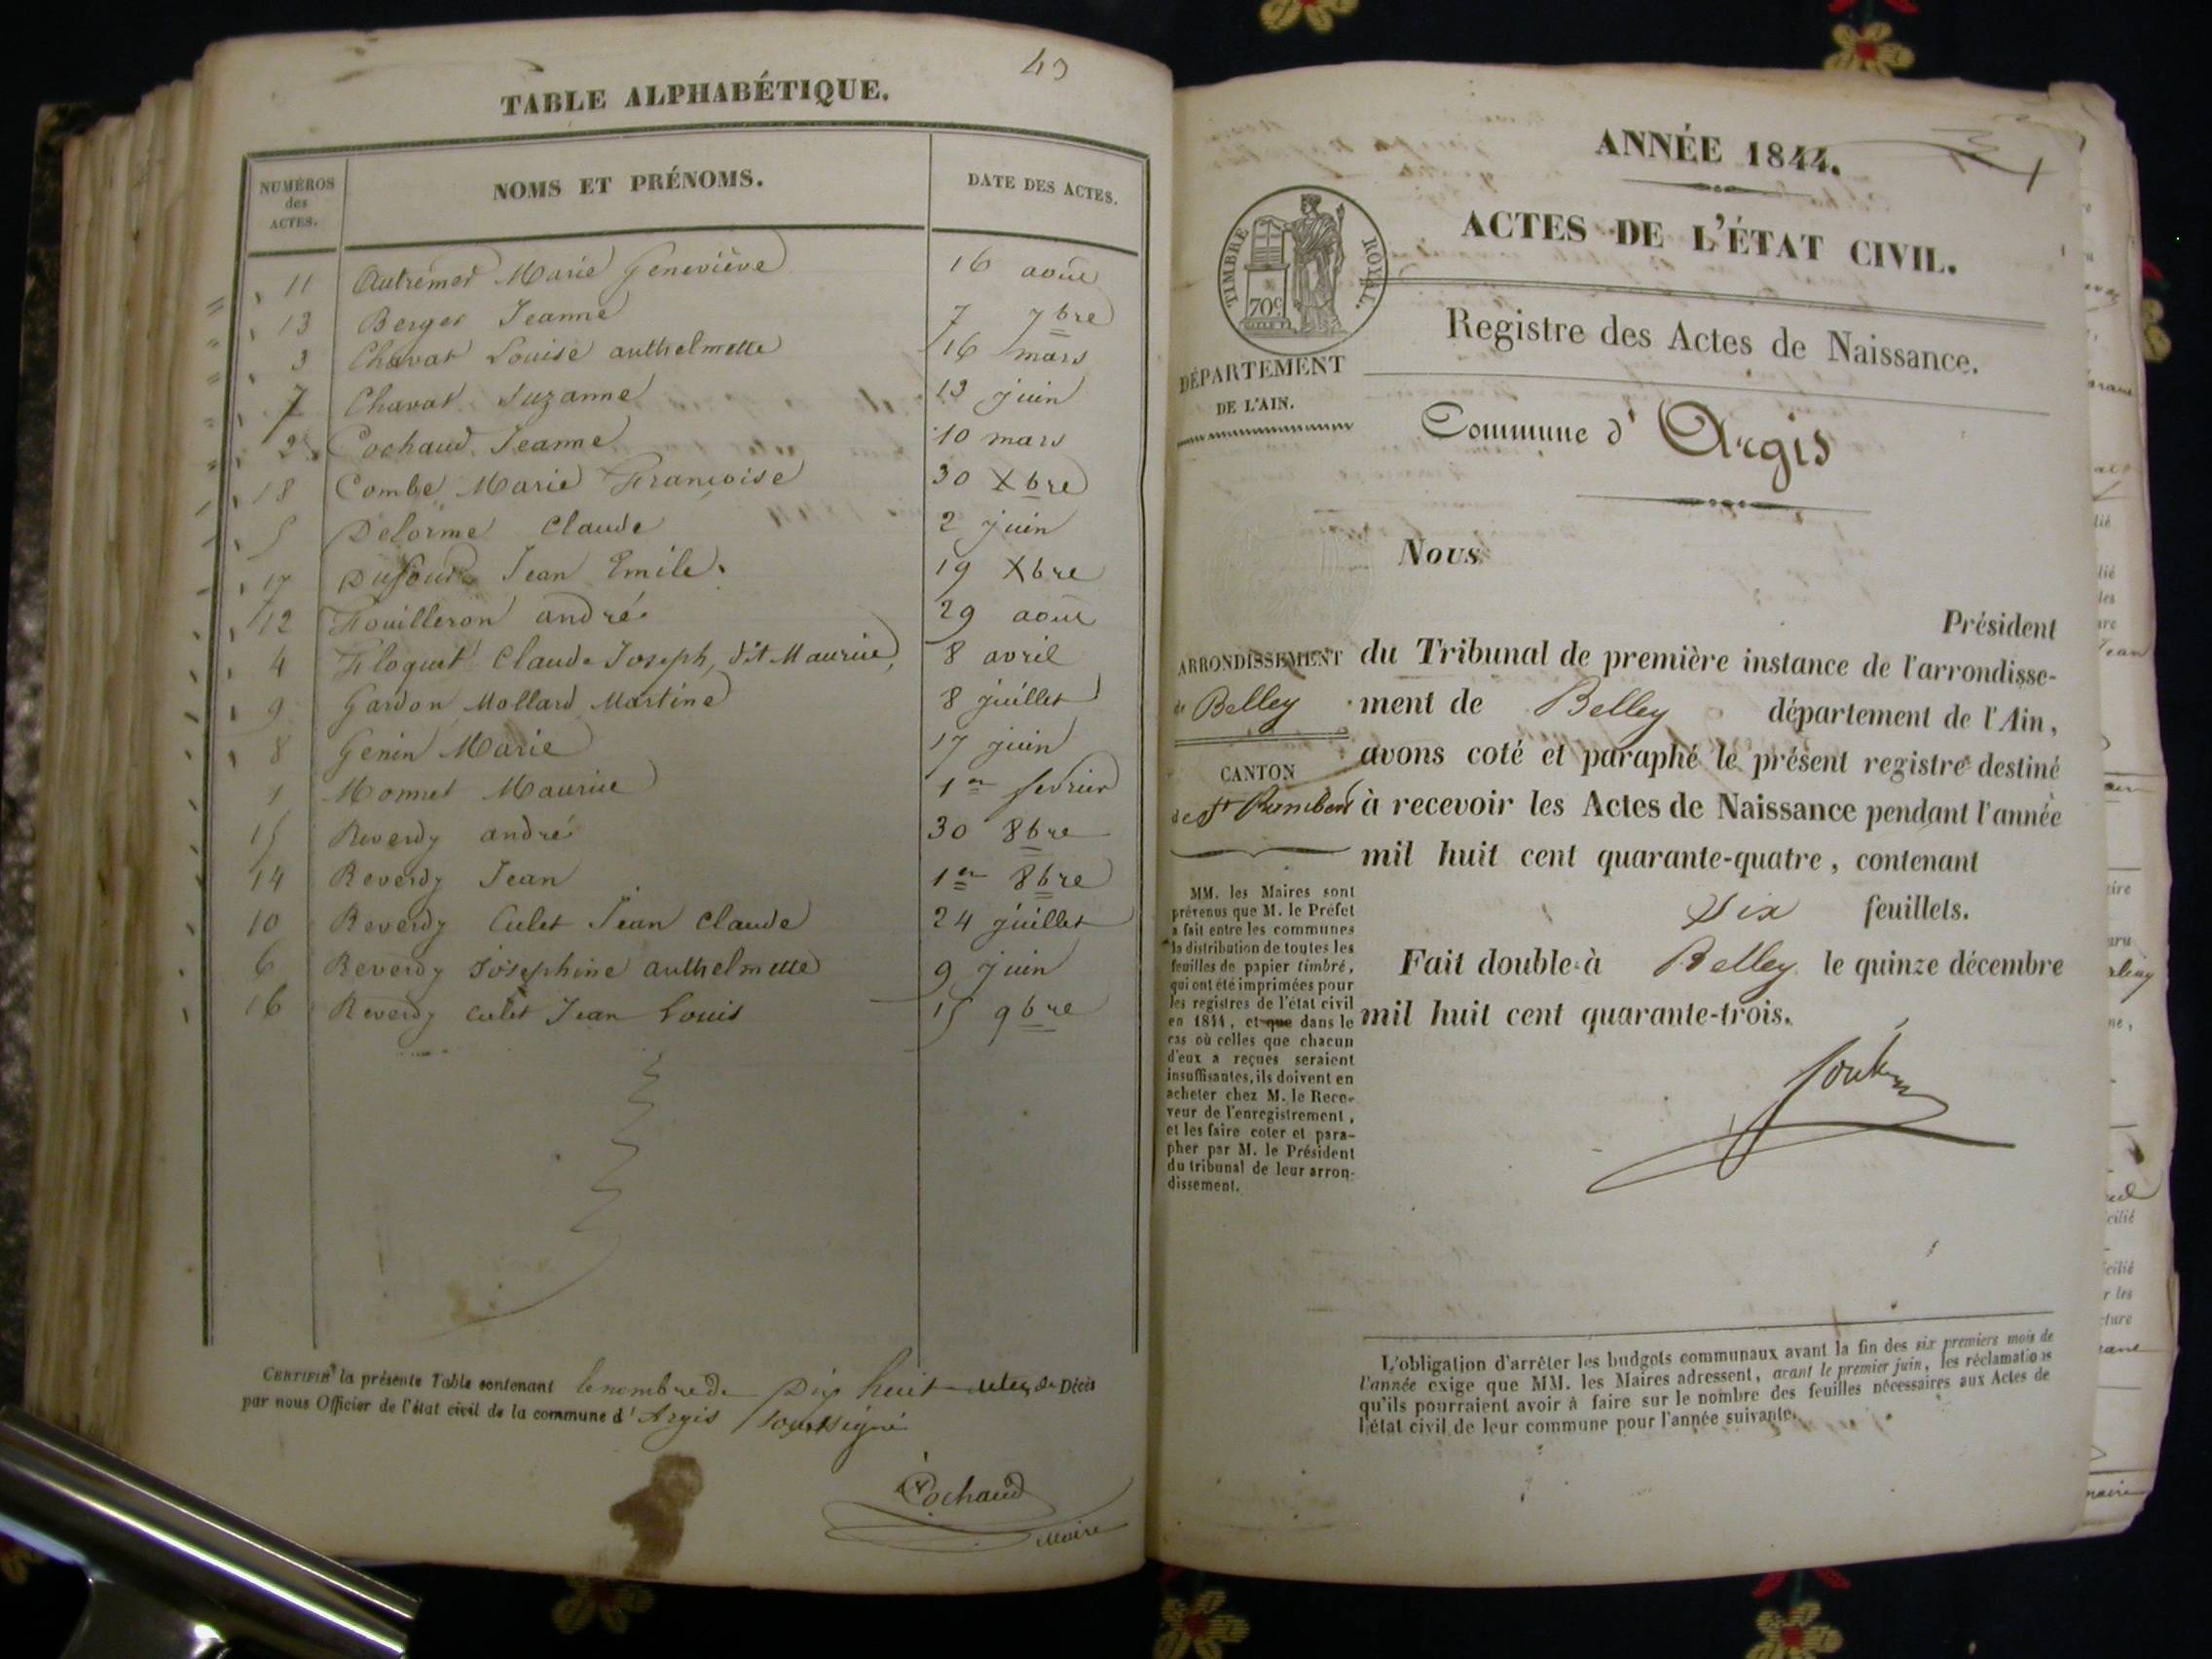 49
TABLE ALPHABÉTIQUE.
NUMÉROS des ACTES. NOMS ET PRÉNOMS. DATE DES ACTES.
11 Autremer Marie Geneviève 16 août
13 Berger Jeanne 7 7bre
3 Chavat Louise anthelmette 16 mars
7 Chavat Suzanne 13 juin
2 Cochaud Jeanne 10 mars
18 Combe Marie Françoise 30 Xbre
5 Delorme Claude 2 juin
17 Dufour Jean Emile. 19 Xbre
12 Fouilleron andré 29 août
4 Floquet Claude Joseph, dit Maurice, 8 avril
9 Gardon Mollard Martine 8 juillet
8 Genin Marie 17 juin
1 Monnet Maurice 1er fevrier
15 Reverdy andré 30 8bre
14 Reverdy Jean 1er 8bre
10 Reverdy Culet Jean Claude 24 juillet
6 Reverdy Joséphine anthelmette 9 juin
16 Reverdy culet Jean Louis 15 9bre
CERTIFIÉ la présente Table contenant le nombre de Dix huit actes de Décès
par nous Officier de l'état civil de la commune d' Argis soussigné
Cochaud
Maire
ANNÉE 1844.
ACTES DE L'ÉTAT CIVIL.
TIMBRE ROYAL.
70c
Registre des Actes de Naissance.
DÉPARTEMENT
DE L'AIN.
Commune d' Argis
Nous
Président
ARRONDISSEMENT
de Belley
CANTON
de St Rambert
du Tribunal de première instance de l'arrondisse-
ment de Belley département de l'Ain,
avons coté et paraphé le présent registre destiné
à recevoir les Actes de Naissance pendant l'année
mil huit cent quarante-quatre, contenant
Six feuillets.
Fait double à Belley le quinze décembre
mil huit cent quarante-trois.
MM. les Maires sont
prévenus que M. le Préfet
a fait entre les communes
la distribution de toutes les
feuilles de papier timbré,
qui ont été imprimées pour
les registres de l'état civil
en 1844, et que dans le
cas où celles que chacun
d'eux a reçues seraient
insuffisantes, ils doivent en
acheter chez M. le Rece-
veur de l'enregistrement,
et les faire coter et para-
pher par M. le Président
du tribunal de leur arron-
dissement.
L'obligation d'arrêter les budgets communaux avant la fin des six premiers mois de
l'année exige que MM. les Maires adressent, avant le premier juin, les réclamations
qu'ils pourraient avoir à faire sur le nombre des feuilles nécessaires aux Actes de
l'état civil de leur commune pour l'année suivante.